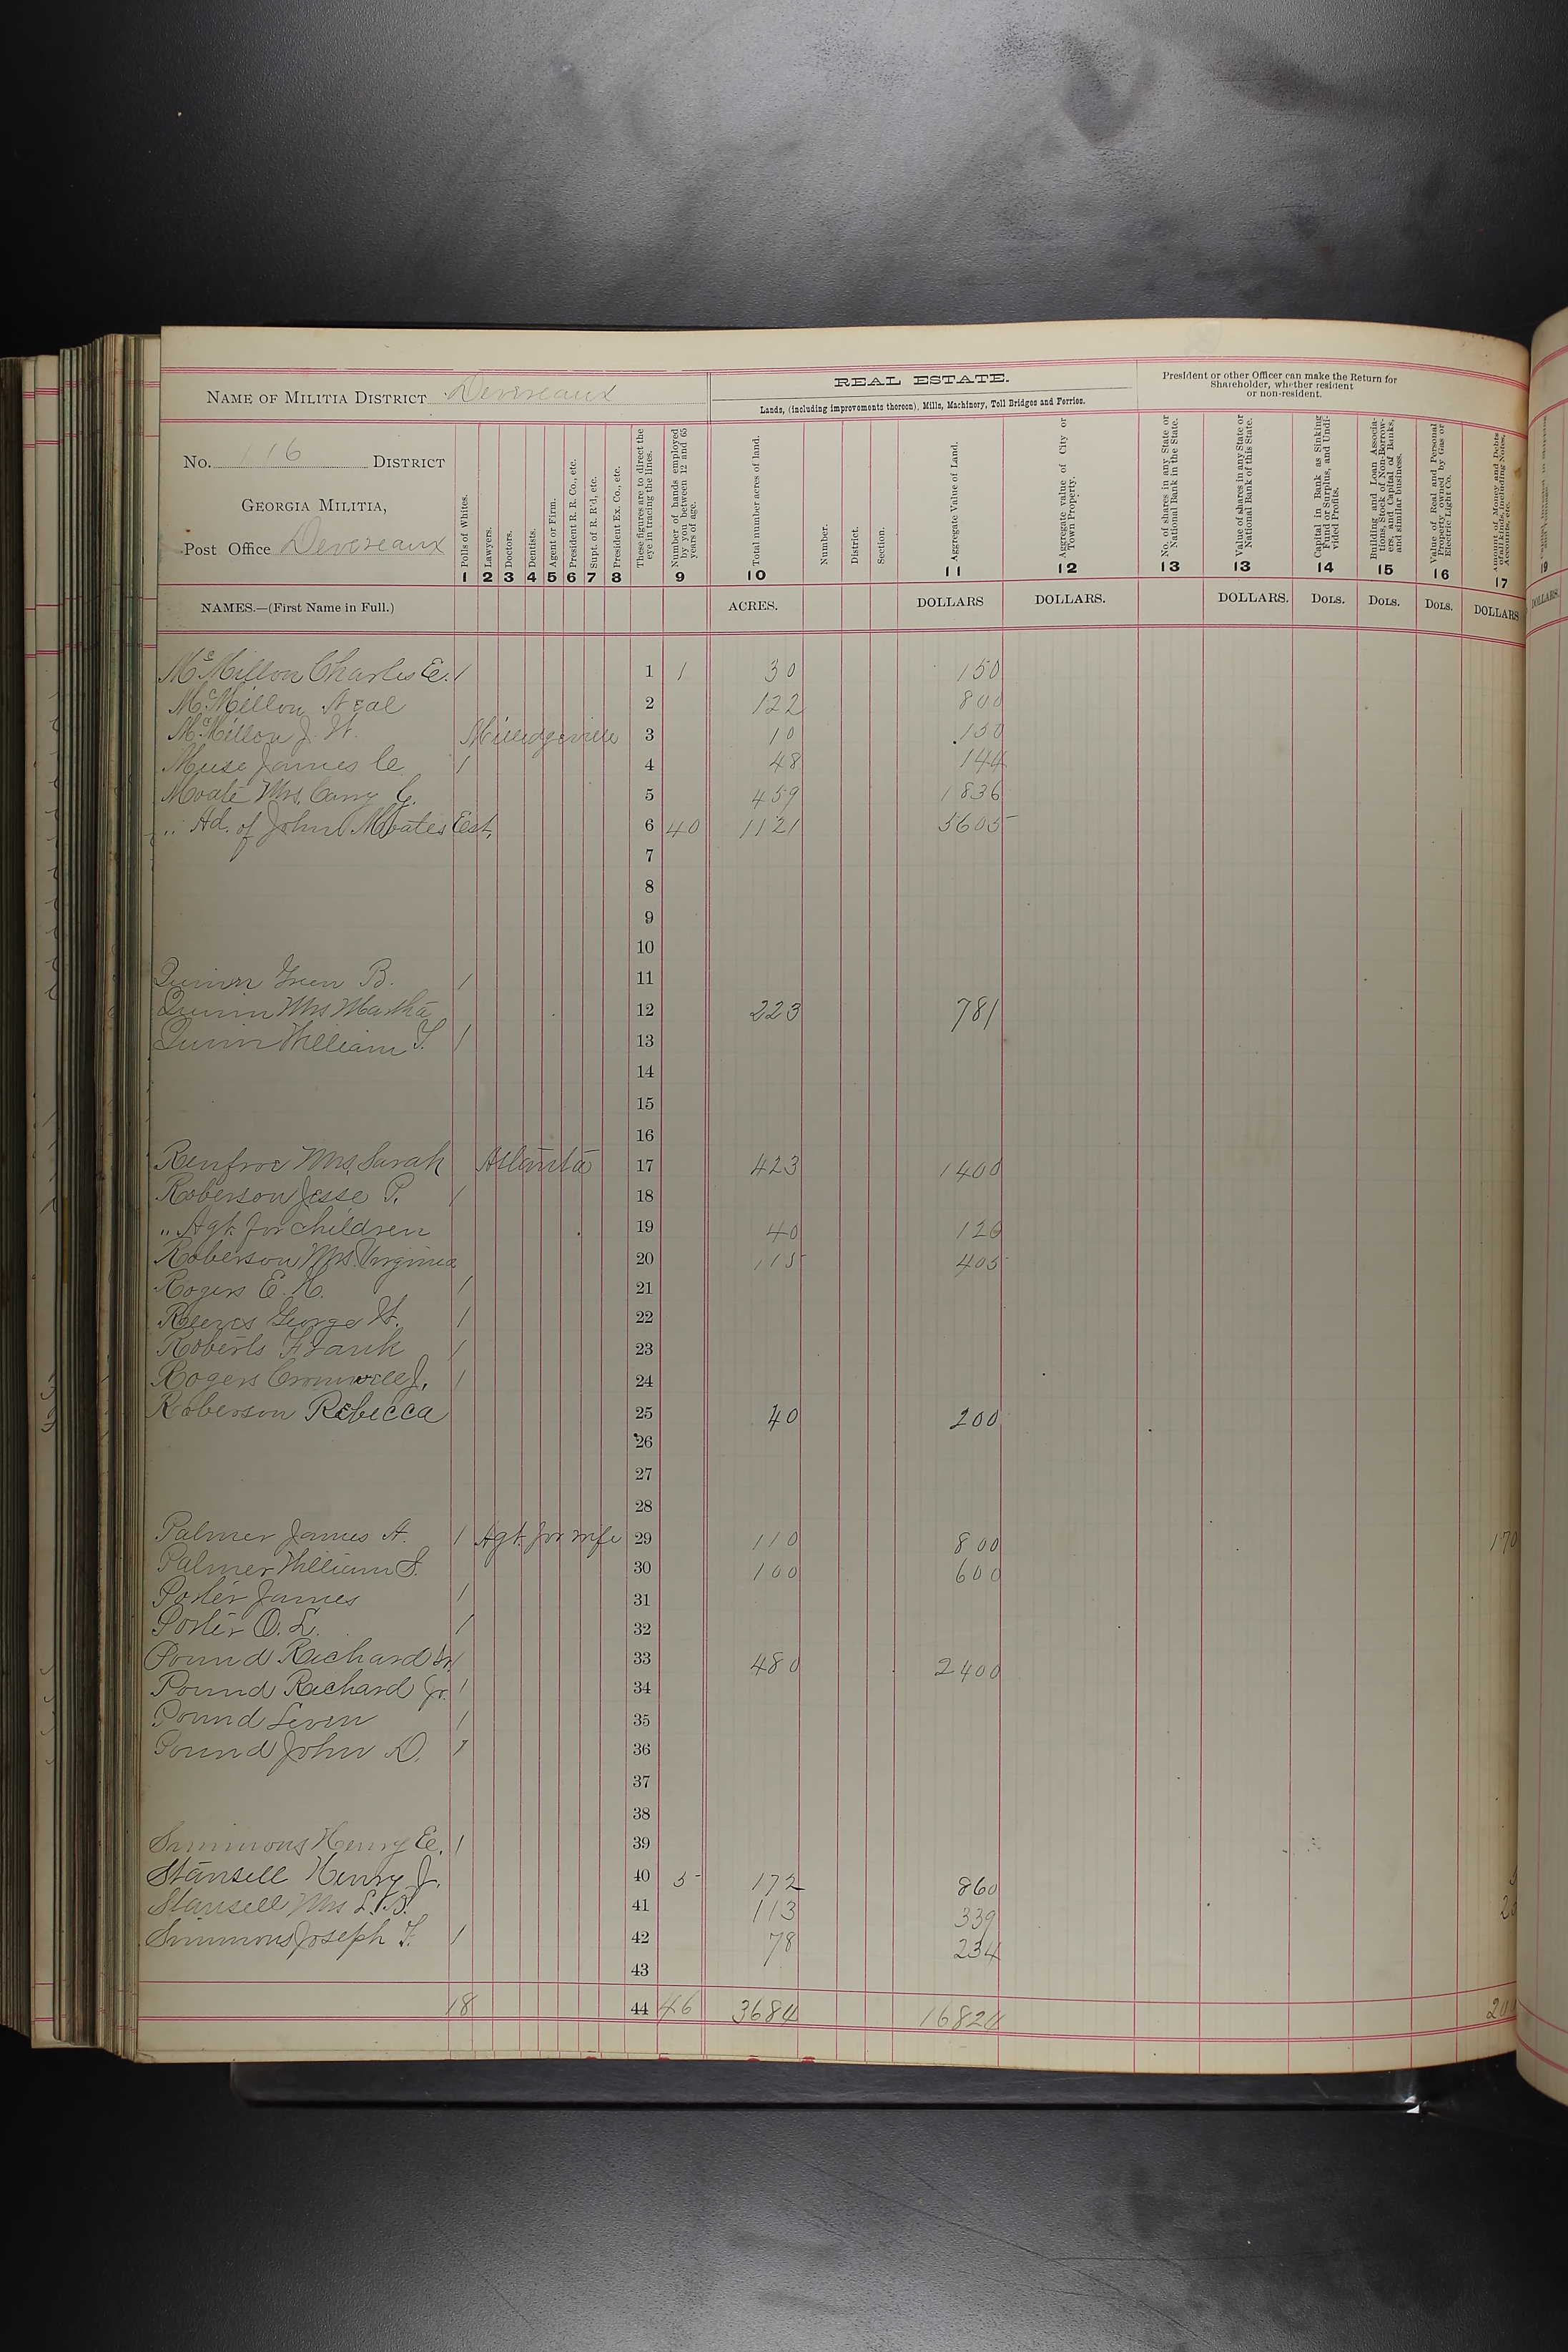 NAME OF MILITIA DISTRICT Devereaux
No. 116 DISTRICT
GEORGIA MILITIA,
Post Office Devereaux
REAL ESTATE.
Lands, (including improvements thereon), Mills, Machinery, Toll Bridges and Ferries.
President or other Officer can make the Return for
Shareholder, whether resident
or non-resident.
Polls of Whites. 1
Lawyers. 2
Doctors. 3
Dentists. 4
Agent or Firm. 5
President R. R. Co., etc. 6
Supt. of R. R'd, etc. 7
President Ex. Co., etc. 8
These figures are to direct the eye in tracing the lines.
Number of hands employed by you between 12 and 65 years of age. 9
Total number acres of land. 10
Number.
District.
Section.
Aggregate Value of Land. 11
Aggregate value of City or Town Property. 12
No. of shares in any State or National Bank in the State. 13
Value of shares in any State or National Bank of this State. 13
Capital in Bank as Sinking Fund or Surplus, and Undivided Profits. 14
Building and Loan Associations, Stock of Non-Borrowers, and Capital of Banks, and similar business. 15
Value of Real and Personal Property owned by Gas or Electric Light Co. 16
Amount of Money and Debts of all kinds, including Notes, Accounts, etc. 17
19
NAMES.—(First Name in Full.) ACRES. DOLLARS DOLLARS. DOLLARS. DOLS. DOLS. DOLS. DOLLARS DOLLARS.
McMillon Charles E. 1 1 1 30 150
McMillon Neal 2 122 800
McMillon J. W. Milledgeville 3 10 150
Muse James C 1 4 48 144
Moate Mrs. Carry G. 5 459 1836
" Ad. of John Moates Est. 6 40 1121 5605
7
8
9
10
Quinn Green B. 1 11
Quinn Mrs Martha 12 223 781
Quinn William T. 1 13
14
15
16
Renfroe Mrs. Sarah Atlanta 17 423 1400
Roberson Jesse P. 1 18
" Agt. for children 19 40 120
Roberson Mrs. Virginia 20 115 405
Rogers E. H. 1 21
Reeves George W. 1 22
Roberts Frank 1 23
Rogers Cromwell J. 1 24
Roberson Rebecca 25 40 200
26
27
28
Palmer James A. 1 Agt. for wife 29 110 800 170
Palmer William S. 30 100 600
Porter James 1 31
Porter O. L. 1 32
Pound Richard Sr. 1 33 480 2400
Pound Richard Jr. 1 34
Pound Levin 1 35
Pound John D. 1 36
37
38
Simmons Henry E. 1 39
Stansell Henry J. 40 5 172 860
Stansell Mrs L. B. 41 113 339
Simmons Joseph F. 1 42 78 234
43
18 44 46 3684 16824